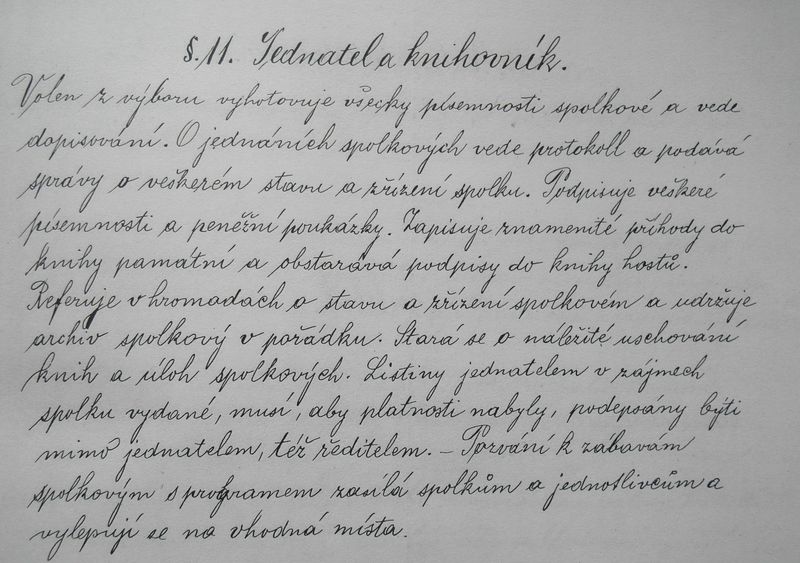 §. 11. Jednatel a knihovník.
Volen z výboru vyhotovuje všecky písemnosti spolkové a vede
dopisování. O jednáních spolkových vede protokoll a podává
správy o veškerém stavu a zřízení spolku. Podpisuje veškeré
písemnosti a peněžní poukázky. Zapisuje znamenité příhody do
knihy památní a obstarává podpisy do knihy hostů.
Referuje v hromadách o stavu a zřízení spolkovém a udržuje
archiv spolkový v pořádku. Stará se o náležité uschování
knih a úloh spolkových. Listiny jednatelem v zájmech
spolku vydané, musí, aby platnosti nabyly, podepsány býti
mimo jednatelem, též ředitelem. – Pozvání k zábavám
spolkovým s programem zasílá spolkům a jednotlivcům a
vylepují se na vhodná místa.